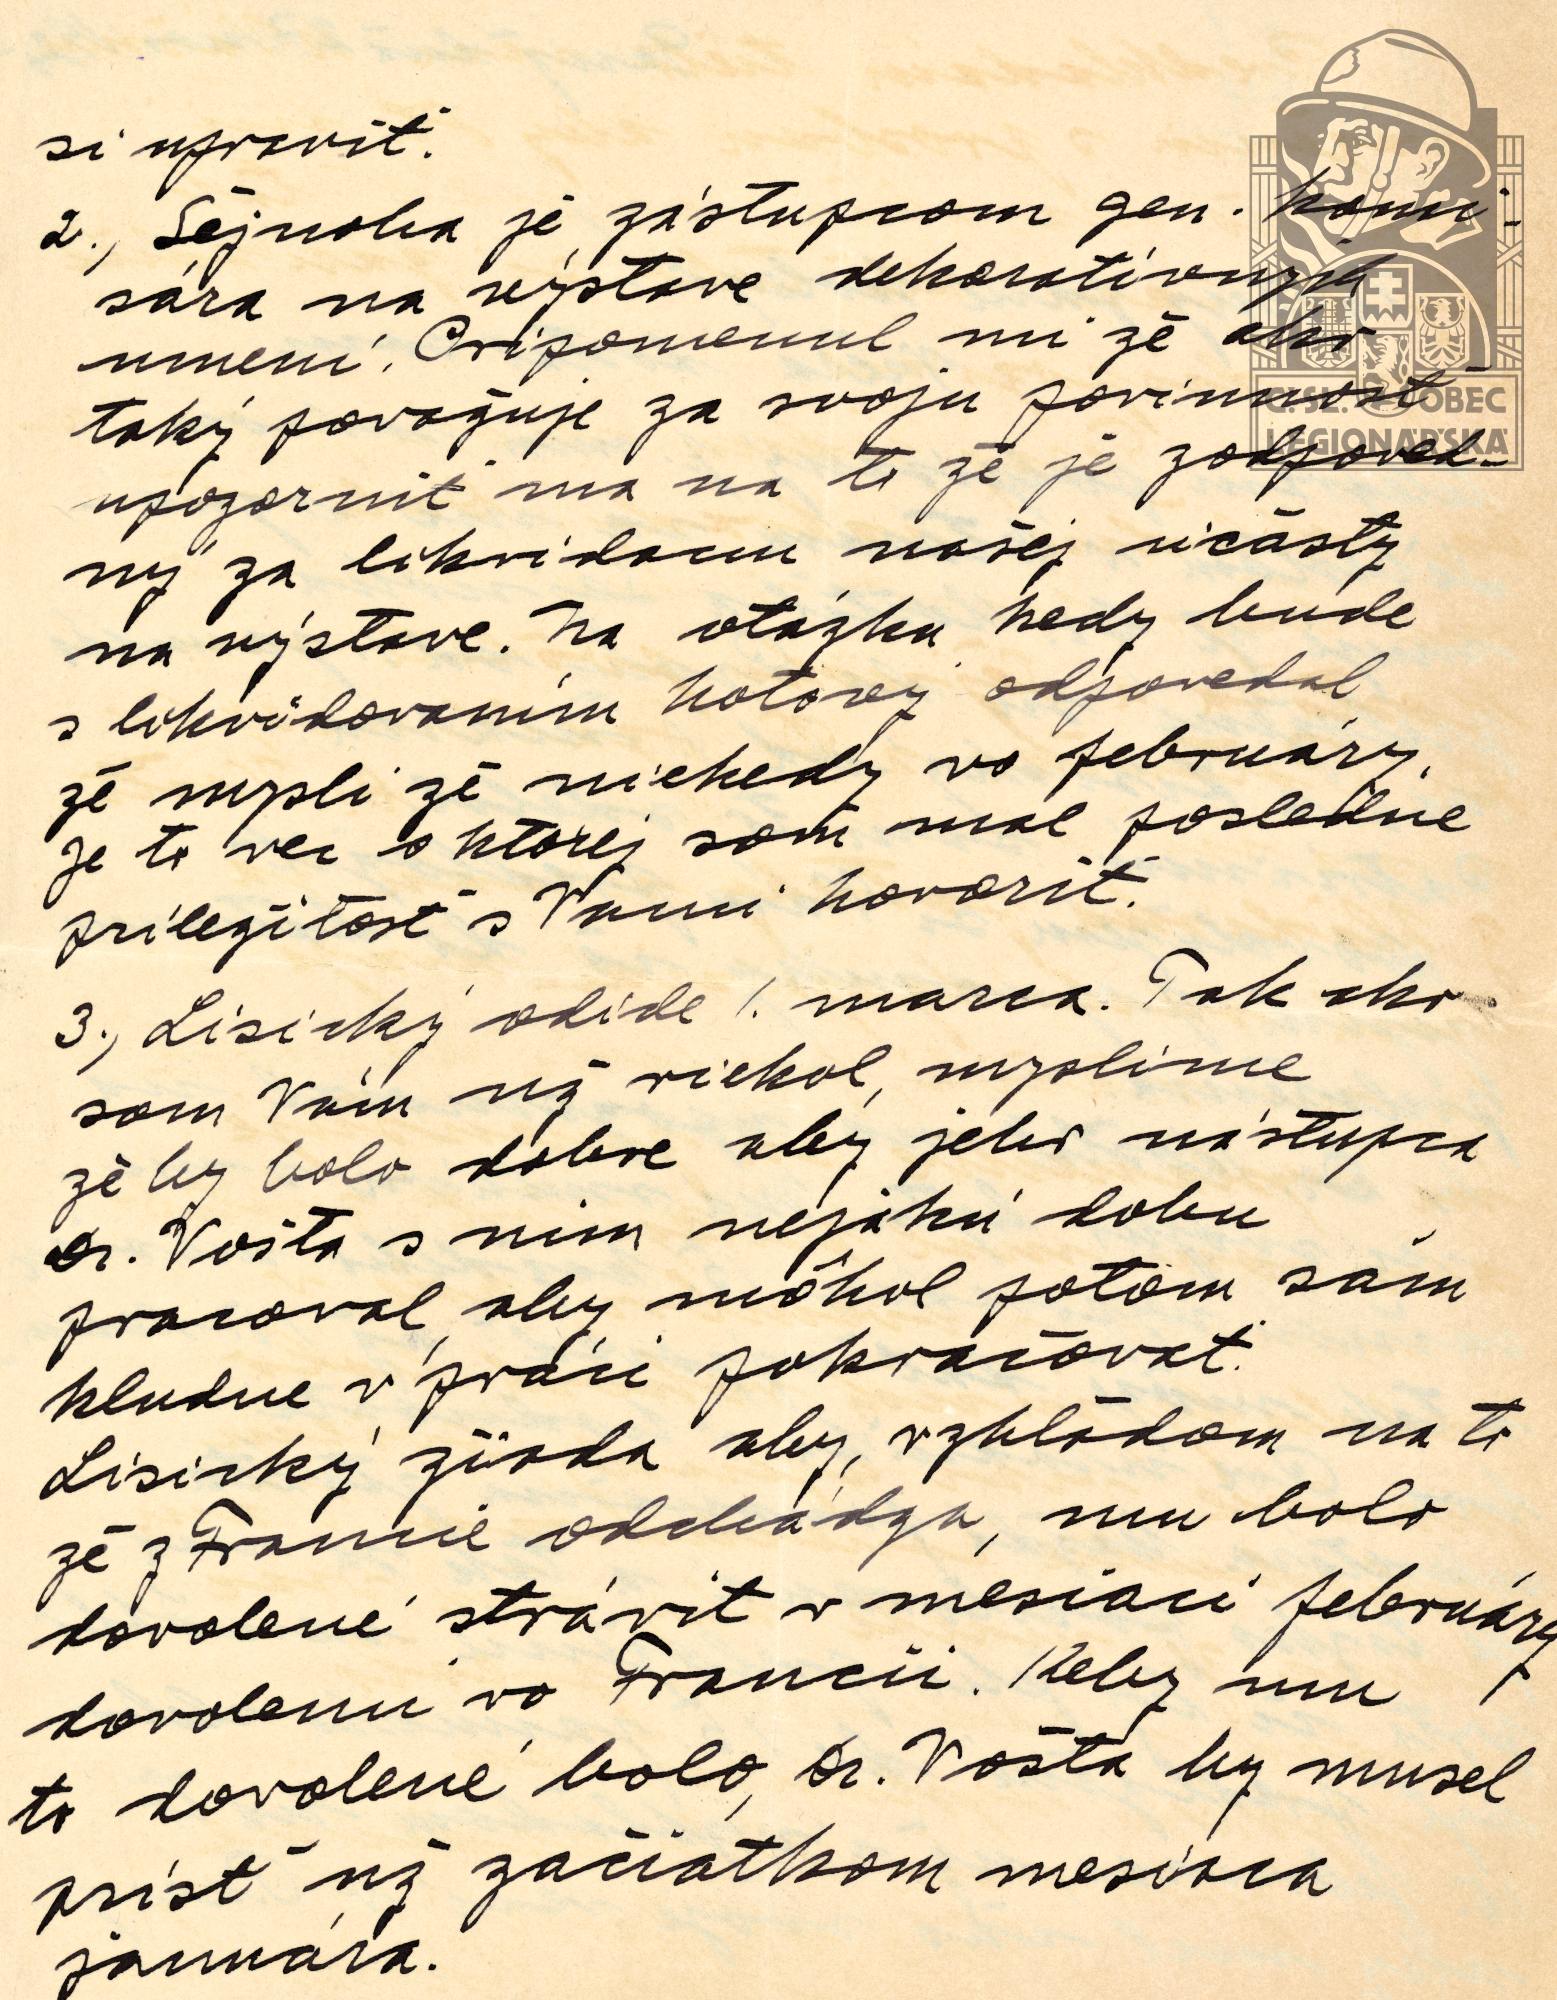 si upraviť.
2., Šejnoha je zástupcom gen. komi-
sára na výstave dekoratívnych
umení. Pripomenul mi že ako
taký považuje za svoju povinnosť
upozorniť ma na to že je zodpoved-
ný za likvidaciu našej účasty
na výstave. Na otázku kedy bude
s likvidovaním hotový odpovedal
že mysli že niekedy vo februáry.
Je to vec o ktorej som mal posledne
priležitosť s Vami hovoriť.
3., Lisický odide 1. marca. Tak ako
som Vám už riekol, myslime
že by bolo dobre aby jeho nástupca
Dr. Vošta s nim nejakú dobu
pracoval, aby môhol potom sám
kludne v práci pokračovať.
Lisický žiada aby, vzhľadom na to
že z Francie odchádza, mu bolo
dovolené stráviť v mesiaci februáry
dovolenú vo Francii. Keby mu
to dovolené bolo, Dr. Vošta by musel
prísť už začiatkom mesiaca
januára.
Č.SL. OBEC
LEGIONÁŘSKÁ